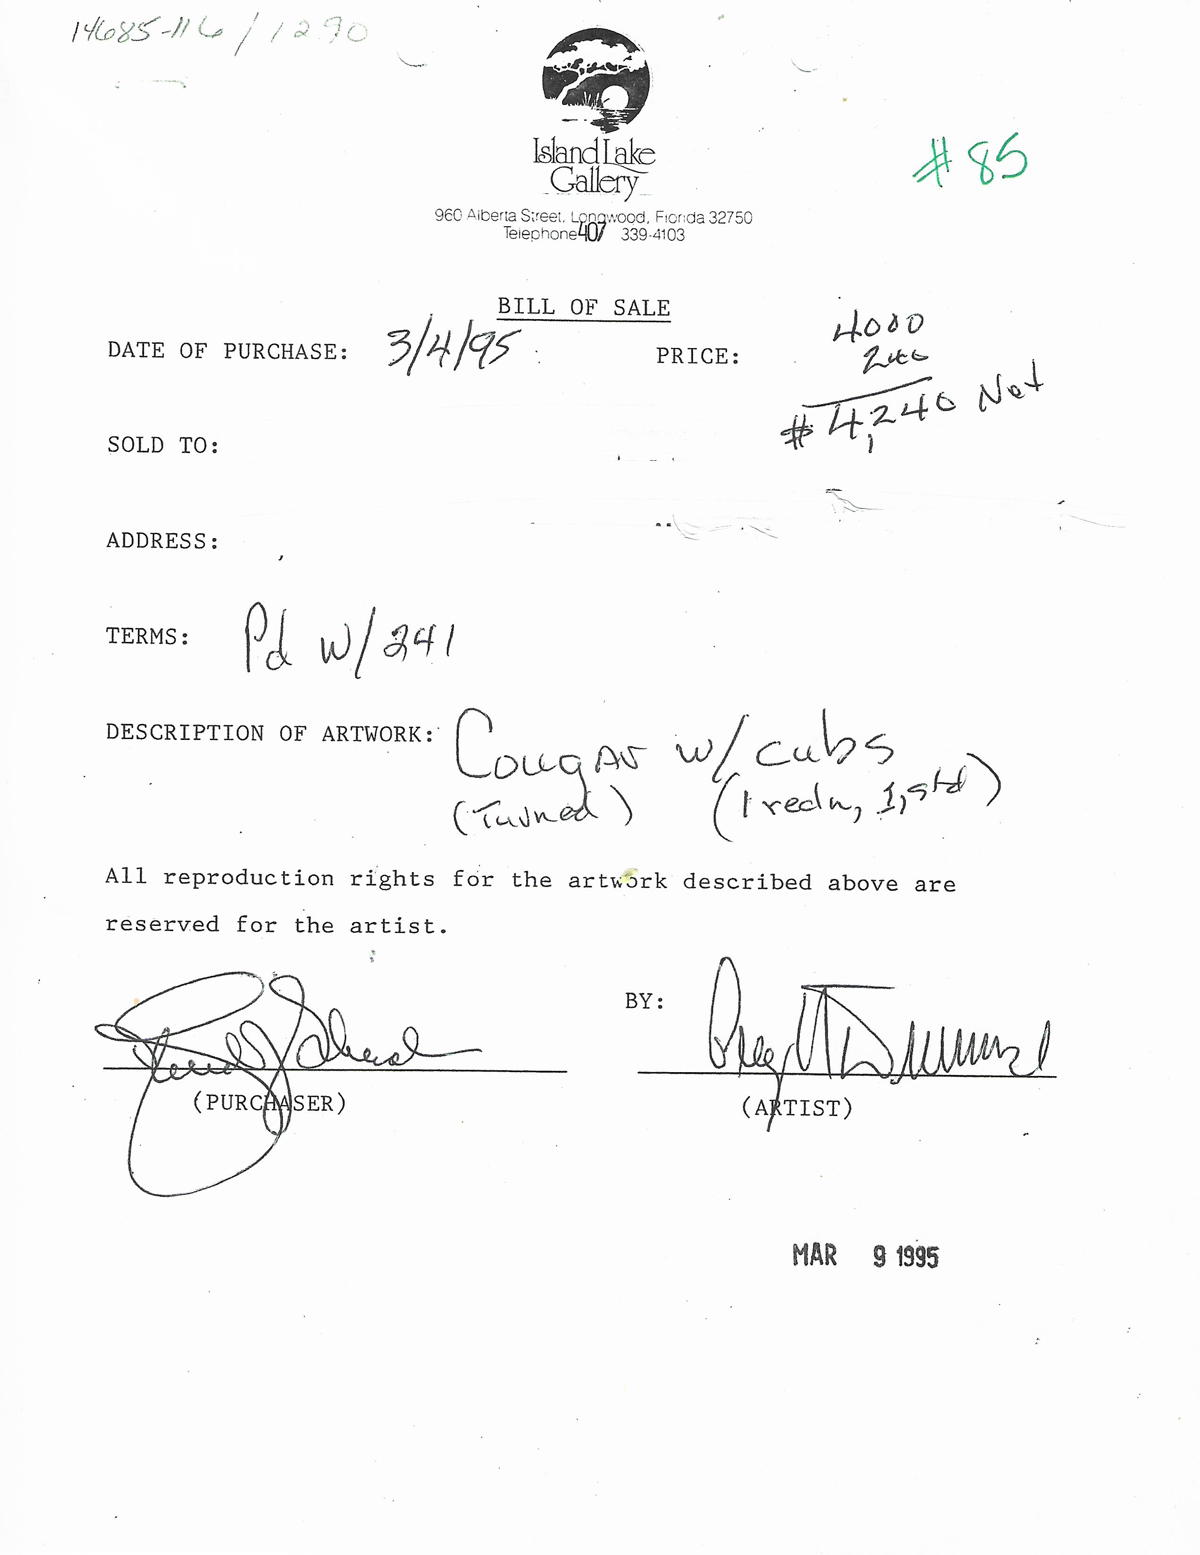 14685-116 / 1290
# 85
Island Lake
Gallery
960 Alberta Street, Longwood, Florida 32750
Telephone 407 339-4103
BILL OF SALE
DATE OF PURCHASE: 3/4/95 PRICE: 4000
$4,240 Net
SOLD TO:
ADDRESS:
TERMS: Pd w/ 241
DESCRIPTION OF ARTWORK: Cougar w/ cubs
(Turned) (1 redn, 1, std)
All reproduction rights for the artwork described above are
reserved for the artist.
BY:
(PURCHASER) (ARTIST)
MAR 9 1995